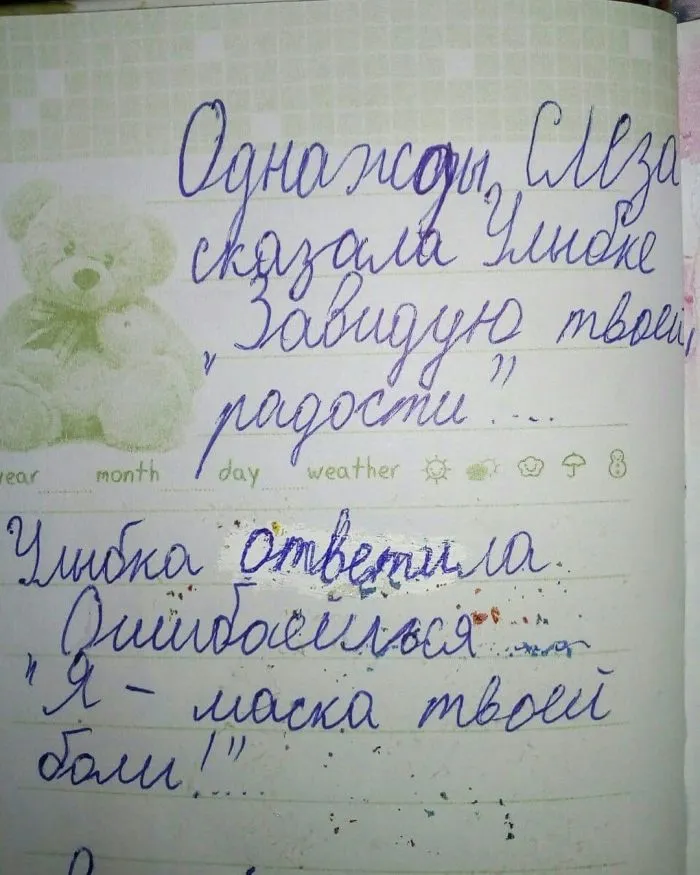 Однажды Слеза
сказала Улыбке
"Завидую твоей
радости"....
year month day weather
Улыбка ответила.
Ошибаешься ...
"Я - маска твоей
боли!"....